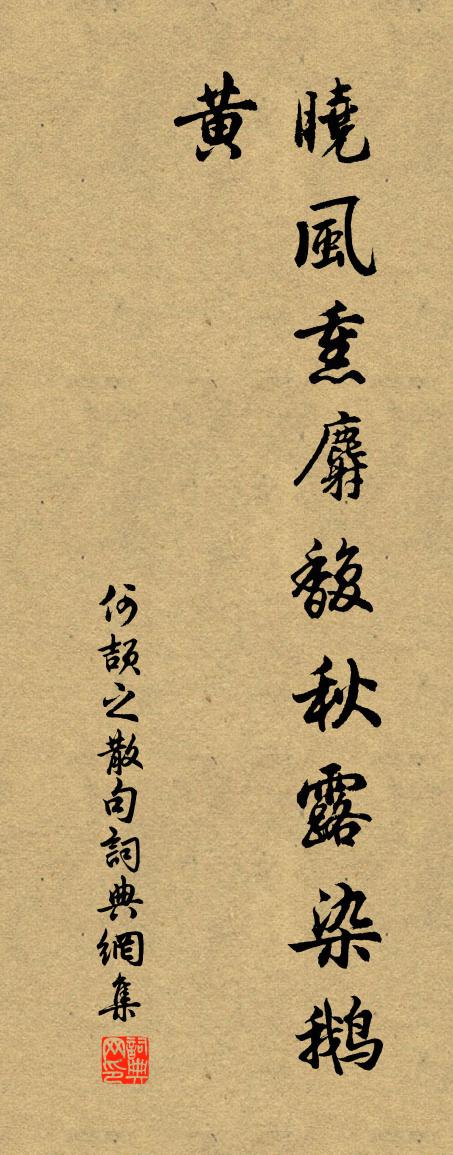 曉風熏麝馥秋露染鵝
黃
何頡之散句詞典網集
詞典网印